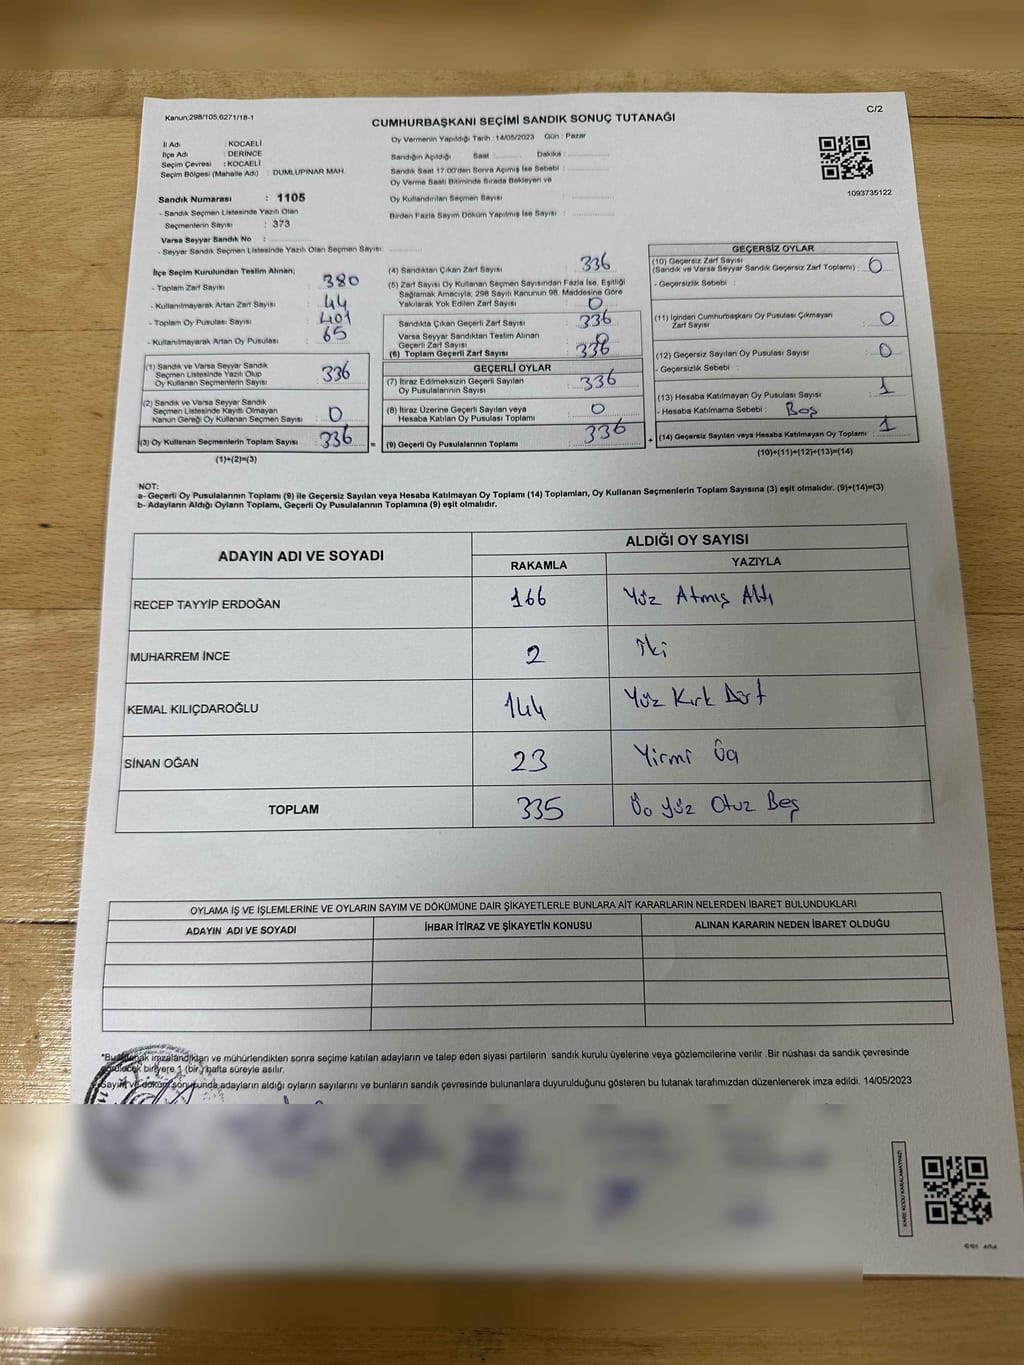 Kanun;298/105,6271/18-1
C/2
CUMHURBAŞKANI SEÇİMİ SANDIK SONUÇ TUTANAĞI
Oy Vermenin Yapıldığı Tarih : 14/05/2023 Gün : Pazar
İl Adı : KOCAELİ
İlçe Adı : DERİNCE
Seçim Çevresi : KOCAELİ
Seçim Bölgesi (Mahalle Adı) : DUMLUPINAR MAH.
Sandığın Açıldığı Saat : Dakika :
Sandık Saat 17:00'den Sonra Açımış İse Sebebi :
Oy Verme Saati Bitiminde Sırada Bekleyen ve
Oy Kullandırılan Seçmen Sayısı :
Birden Fazla Sayım Döküm Yapılmış İse Sayısı :
1093735122
Sandık Numarası : 1105
- Sandık Seçmen Listesinde Yazılı Olan
Seçmenlerin Sayısı : 373
Varsa Seyyar Sandık No :
- Seyyar Sandık Seçmen Listesinde Yazılı Olan Seçmen Sayısı:
İlçe Seçim Kurulundan Teslim Alınan;
- Toplam Zarf Sayısı : 380
- Kullanılmayarak Artan Zarf Sayısı : 44
- Toplam Oy Pusulası Sayısı : 401
- Kullanılmayarak Artan Oy Pusulası : 65
(1) Sandık ve Varsa Seyyar Sandık
Seçmen Listesinde Yazılı Olup
Oy Kullanan Seçmenlerin Sayısı : 336
(2) Sandık ve Varsa Seyyar Sandık
Seçmen Listesinde Kayıtlı Olmayan
Kanun Gereği Oy Kullanan Seçmen Sayısı : 0
(3) Oy Kullanan Seçmenlerin Toplam Sayısı : 336
(1)+(2)=(3)
(4) Sandıktan Çıkan Zarf Sayısı : 336
(5) Zarf Sayısı Oy Kullanan Seçmen Sayısından Fazla İse, Eşitliği
Sağlamak Amacıyla, 298 Sayılı Kanunun 98. Maddesine Göre
Yakılarak Yok Edilen Zarf Sayısı : 0
Sandıkta Çıkan Geçerli Zarf Sayısı : 336
Varsa Seyyar Sandıktan Teslim Alınan
Geçerli Zarf Sayısı : 0
(6) Toplam Geçerli Zarf Sayısı : 336
GEÇERLİ OYLAR
(7) İtiraz Edilmeksizin Geçerli Sayılan
Oy Pusulalarının Sayısı : 336
(8) İtiraz Üzerine Geçerli Sayılan veya
Hesaba Katılan Oy Pusulası Toplamı : 0
= (9) Geçerli Oy Pusulalarının Toplamı : 336
GEÇERSİZ OYLAR
(10) Geçersiz Zarf Sayısı
(Sandık ve Varsa Seyyar Sandık Geçersiz Zarf Toplamı) : 0
- Geçersizlik Sebebi :
(11) İçinden Cumhurbaşkanı Oy Pusulası Çıkmayan
Zarf Sayısı : 0
(12) Geçersiz Sayılan Oy Pusulası Sayısı : 0
- Geçersizlik Sebebi :
(13) Hesaba Katılmayan Oy Pusulası Sayısı : 1
- Hesaba Katılmama Sebebi : Boş
+ (14) Geçersiz Sayılan veya Hesaba Katılmayan Oy Toplamı : 1
(10)+(11)+(12)+(13)=(14)
NOT:
a- Geçerli Oy Pusulalarının Toplamı (9) ile Geçersiz Sayılan veya Hesaba Katılmayan Oy Toplamı (14) Toplamları, Oy Kullanan Seçmenlerin Toplam Sayısına (3) eşit olmalıdır. (9)+(14)=(3)
b- Adayların Aldığı Oyların Toplamı, Geçerli Oy Pusulalarının Toplamına (9) eşit olmalıdır.
ADAYIN ADI VE SOYADI
ALDIĞI OY SAYISI
RAKAMLA YAZIYLA
RECEP TAYYİP ERDOĞAN 166 Yüz Atmış Altı
MUHARREM İNCE 2 İki
KEMAL KILIÇDAROĞLU 144 Yüz Kırk Dört
SİNAN OĞAN 23 Yirmi Üç
TOPLAM 335 Üç Yüz Otuz Beş
OYLAMA İŞ VE İŞLEMLERİNE VE OYLARIN SAYIM VE DÖKÜMÜNE DAİR ŞİKAYETLERLE BUNLARA AİT KARARLARIN NELERDEN İBARET BULUNDUKLARI
ADAYIN ADI VE SOYADI İHBAR İTİRAZ VE ŞİKAYETİN KONUSU ALINAN KARARIN NEDEN İBARET OLDUĞU
imzalandıktan ve mühürlendikten sonra seçime katılan adayların ve talep eden siyasi partilerin sandık kurulu üyelerine veya gözlemcilerine verilir .Bir nüshası da sandık çevresinde
biryere 1 (bir) hafta süreyle asılır.
Sayım ve döküm sonucunda adayların aldığı oyların sayılarını ve bunların sandık çevresinde bulunanlara duyurulduğunu gösteren bu tutanak tarafımızdan düzenlenerek imza edildi. 14/05/2023
KARE KODU KARALAMAYINIZ!